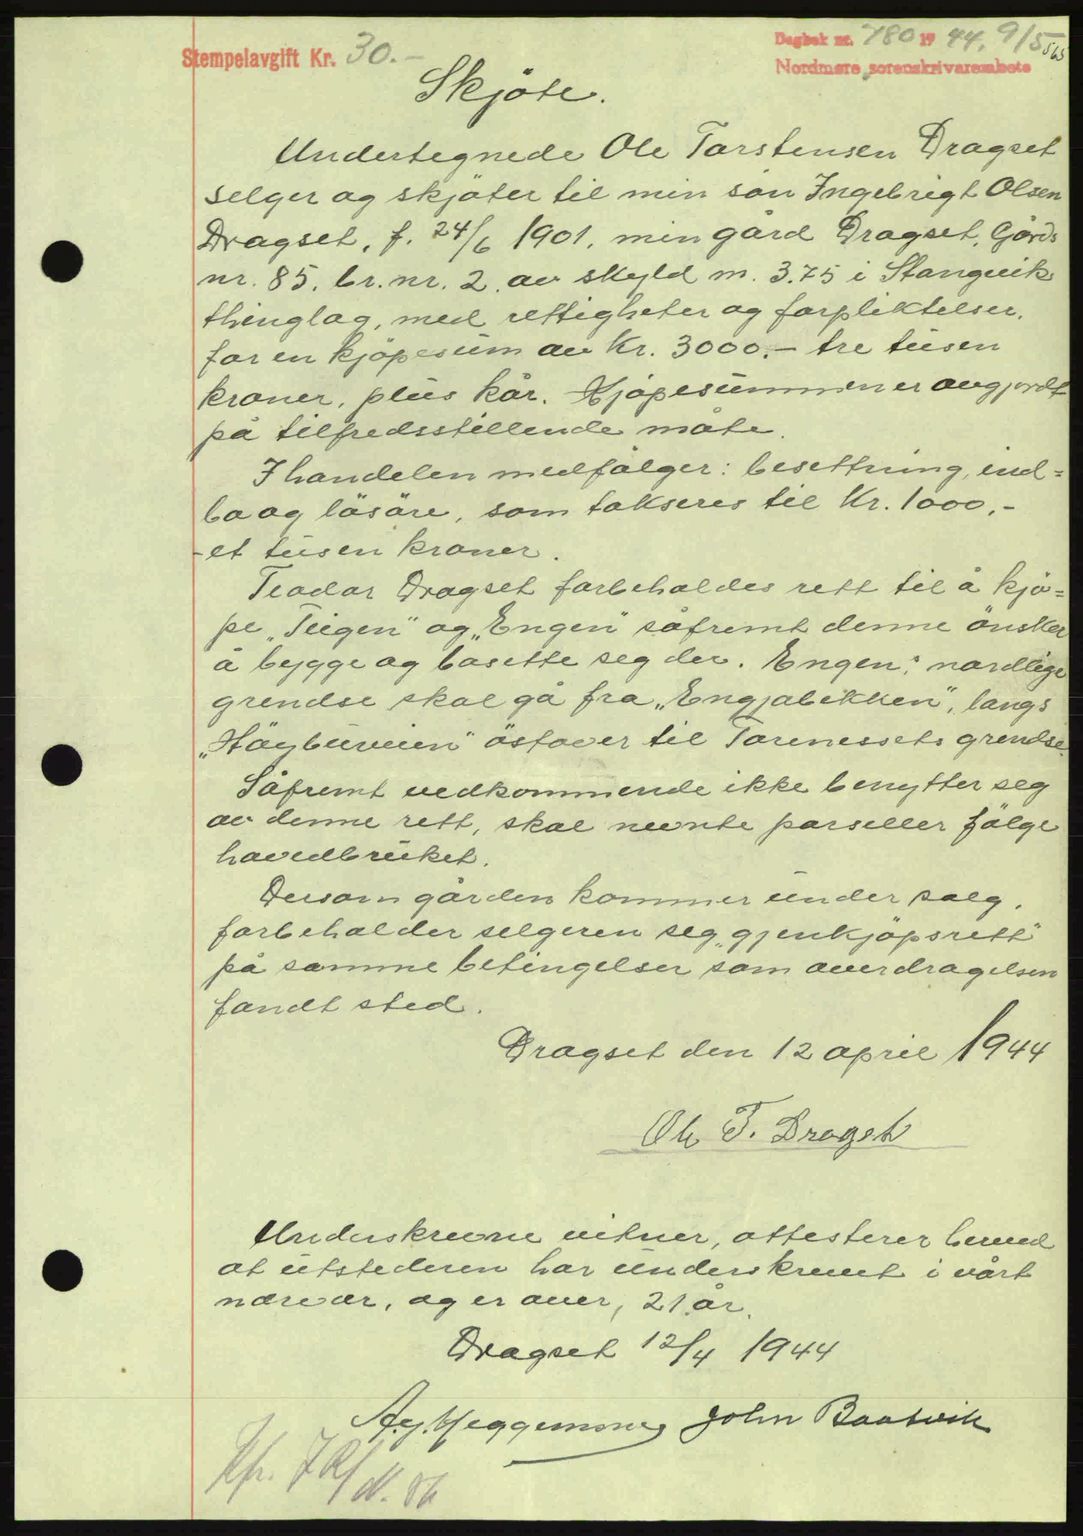 Stempelavgift Kr. 30.-
Dagbok nr. 780 1944. 9/5 565
Nordmøre sorenskrivarembete
Skjöte.
Undertegnede Ole Torstensen Dragset
selger og skjöter til min sön Ingebrigt Olsen
Dragset, f. 24/6 1901, min gård Dragset, Gårds
nr. 85, br. nr. 2 av skyld m. 3.75 i Stangvik
thinglag, med rettigheter og forpliktelser,
for en kjöpesum av Kr. 3000.- tre tusen
kroner, plus kår. Kjöpesummen er avgjordt
på tilfredsstillende måte.
I handelen medfölger: besettning, ind=
bo og lösöre, som takseres til Kr. 1000,-
-et tusen kroner.
Teodor Dragset forbeholdes rett til å kjö=
pe „Teigen" og „Engen" såfremt denne önsker
å bygge og bosette seg der. Engens nordlige
grendse skal gå fra „Engjabekken", langs
„Höybuveien" östover til Torenessets grendse.
Såfremt vedkommende ikke benytter seg
av denne rett, skal nevnte parseller fölge
hovedbruket.
Dersom gården kommer under salg,
forbeholder selgeren seg „gjenkjöpsrett"
på samme betingelser som overdragelsen
fandt sted.
Dragset den 12 april 1944
Ole T. Dragset
Underskrevne vitner, attesterer herved
at utstederen har underskrevet i vårt
nærvær, og er over, 21 år.
Dragset 12/4 1944
John Baatvik